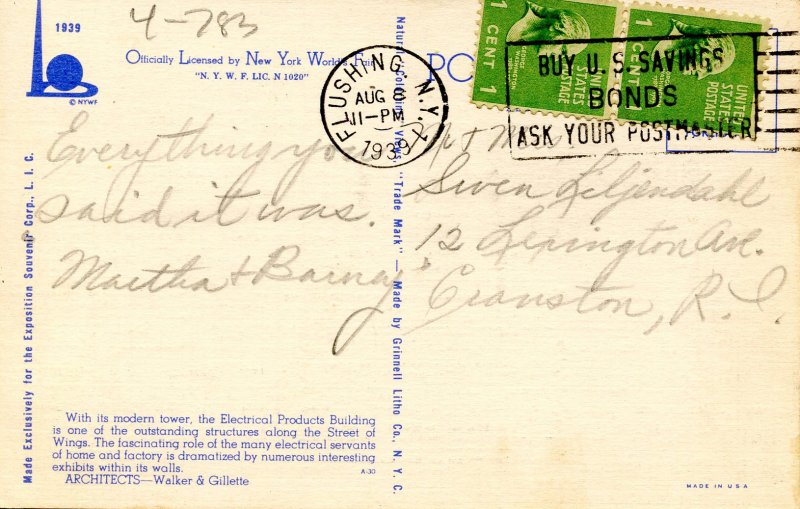 4-783
1939
© NYWF
Officially Licensed by New York World's Fair
"N. Y. W. F. LIC. N 1020"
PO
1 CENT
UNITED STATES POSTAGE
1 CENT
UNITED STATES POSTAGE
FLUSHING, N.Y.
AUG 8
11-PM
1939
BUY U. S. SAVINGS
BONDS
ASK YOUR POSTMASTER
Everything you
said it was.
Martha & Barney
Mr + Mrs
Swen Liljendahl
12 Lexington Ave.
Cranston, R. I.
Made Exclusively for the Exposition Souvenir Corp., L. I. C.
Natural Coloring Views, "Trade Mark" — Made by Grinnell Litho Co., N. Y. C.
With its modern tower, the Electrical Products Building
is one of the outstanding structures along the Street of
Wings. The fascinating role of the many electrical servants
of home and factory is dramatized by numerous interesting
exhibits within its walls.
A-30
ARCHITECTS—Walker & Gillette
MADE IN USA